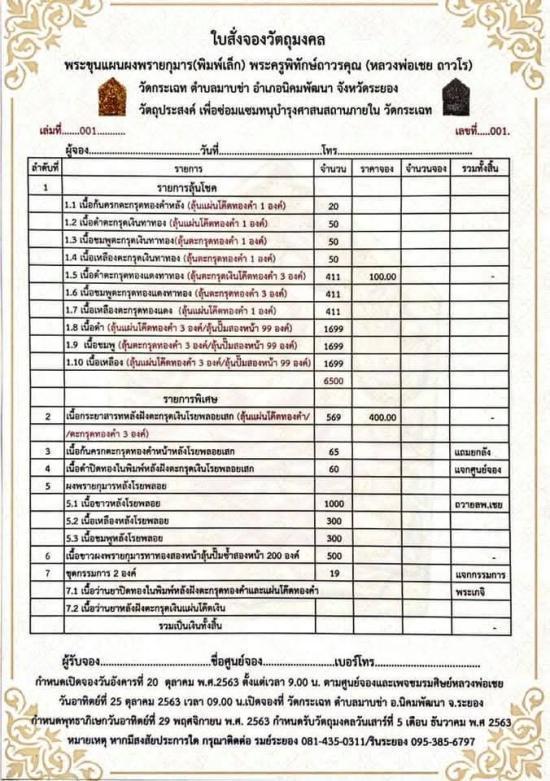 ใบสั่งจองวัตถุมงคล
พระขุนแผนผงพรายกุมาร(พิมพ์เล็ก) พระครูพิทักษ์ถาวรคุณ (หลวงพ่อเชย ถาวโร)
วัดกระเฉท ตำบลมาบข่า อำเภอนิคมพัฒนา จังหวัดระยอง
วัตถุประสงค์ เพื่อซ่อมแซมทนุบำรุงศาสนสถานภายใน วัดกระเฉท
เล่มที่.......001........... เลขที่.....001.
ผู้จอง................................วันที่................................โทร................................
ลำดับที่ รายการ จำนวน ราคาจอง จำนวนจอง รวมทั้งสิ้น
1 รายการลุ้นโชค
1.1 เนื้อก้นครกตะกรุดทองคำหลัง (ลุ้นแผ่นโค๊ดทองคำ 1 องค์) 20
1.2 เนื้อดำตะกรุดเงินทาทอง (ลุ้นแผ่นโค๊ดทองคำ 1 องค์) 50
1.3 เนื้อชมพูตะกรุดเงินทาทอง(ลุ้นตะกรุดทองคำ 1 องค์) 50
1.4 เนื้อเหลืองตะกรุดเงินทาทอง (ลุ้นแผ่นโค๊ดทองคำ 1 องค์) 50
1.5 เนื้อดำตะกรุดทองแดงทาทอง (ลุ้นตะกรุดเงินโค๊ดทองคำ 3 องค์) 411 100.00 -
1.6 เนื้อชมพูตะกรุดทองแดงทาทอง (ลุ้นตะกรุดทองคำ 3 องค์) 411
1.7 เนื้อเหลืองตะกรุดทองแดง (ลุ้นแผ่นโค๊ดทองคำ 1 องค์) 411
1.8 เนื้อดำ (ลุ้นแผ่นโค๊ดทองคำ 3 องค์/ลุ้นปั๊มสองหน้า 99 องค์) 1699
1.9 เนื้อชมพู (ลุ้นตะกรุดทองคำ 3 องค์/ลุ้นปั๊มสองหน้า 99 องค์) 1699
1.10 เนื้อเหลือง (ลุ้นแผ่นโค๊ดทองคำ 3 องค์/ลุ้นปั๊มสองหน้า 99 องค์) 1699
6500
รายการพิเศษ
2 เนื้อกระยาสารทหลังฝังตะกรุดเงินโรยพลอยเสก (ลุ้นแผ่นโค๊ดทองคำ/ 569 400.00 -
/ตะกรุดทองคำ 3 องค์)
3 เนื้อก้นครกตะกรุดทองคำหน้าหลังโรยพลอยเสก 65 แถมยกลัง
4 เนื้อดำปิดทองในพิมพ์หลังฝังตะกรุดเงินโรยพลอยเสก 60 แจกศูนย์จอง
5 ผงพรายกุมารหลังโรยพลอย
5.1 เนื้อขาวหลังโรยพลอย 1000 ถวายลพ.เชย
5.2 เนื้อเหลืองหลังโรยพลอย 300
5.3 เนื้อชมพูหลังโรยพลอย 300
6 เนื้อขาวผงพรายกุมารทาทองสองหน้าลุ้นปั๊มซ้ำสองหน้า 200 องค์ 500 -
7 ชุดกรรมการ 2 องค์ 19 แจกกรรมการ
7.1 เนื้อว่านยาปิดทองในพิมพ์หลังฝังตะกรุดทองคำและแผ่นโค๊ดทองคำ พระเกจิ
7.2 เนื้อว่านยาหลังฝังตะกรุดเงินแผ่นโค๊ดเงิน
รวมเป็นเงินทั้งสิ้น -
ผู้รับจอง..............................ชื่อศูนย์จอง..............................เบอร์โทร..............................
กำหนดเปิดจองวันอังคารที่ 20 ตุลาคม พ.ศ.2563 ตั้งแต่เวลา 9.00 น. ตามศูนย์จองและเพจชมรมศิษย์หลวงพ่อเชย
วันอาทิตย์ที่ 25 ตุลาคม 2563 เวลา 09.00 น.เปิดจองที่ วัดกระเฉท ตำบลมาบข่า อ.นิคมพัฒนา จ.ระยอง
กำหนดพุทธาภิเษกวันอาทิตย์ที่ 29 พฤศจิกายน พ.ศ. 2563 กำหนดรับวัตถุมงคลวันเสาร์ที่ 5 เดือน ธันวาคม พ.ศ 2563
หมายเหตุ หากมีสงสัยประการใด กรุณาติดต่อ รมย์ระยอง 081-435-0311/รินระยอง 095-385-6797